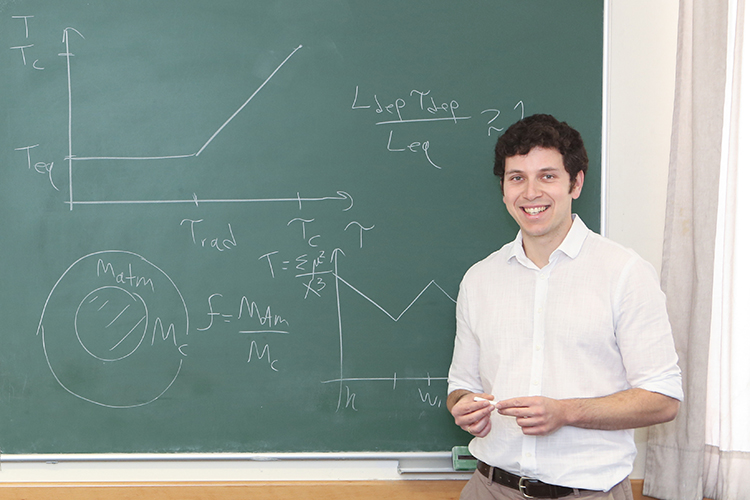 T
T_c
T_eq
τ_rad
τ_c
τ
L_dep τ_dep
L_eq
≳ 1
M_atm
M_c
f = M_Atm
M_c
T = Σμ²
x³